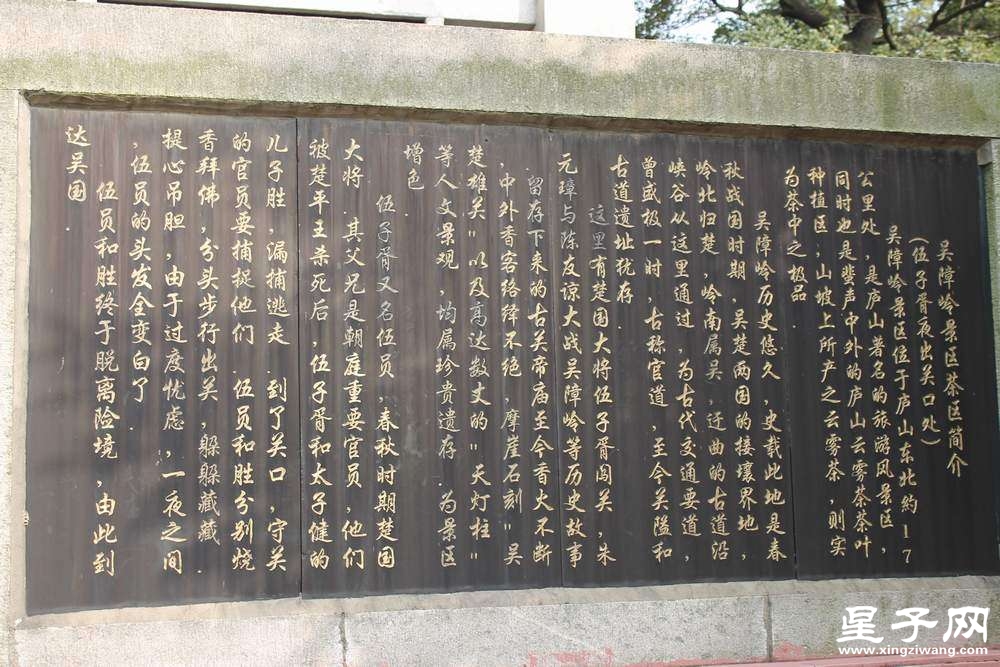 吴障岭景区茶区简介
（伍子胥夜出关口处）
吴障岭景区位于庐山东北约17
公里处，是庐山著名的旅游风景区，
同时也是蜚声中外的庐山云雾茶茶叶
种植区；山坡上所产之云雾茶，则实
为茶中之极品.
吴障岭历史悠久，史载此地是春
秋战国时期，吴楚两国的接壤界地，
岭北归楚，岭南属吴，迂曲的古道沿
峡谷从这里通过，为古代交通要道，
曾盛极一时，古称官道，至今关隘和
古道遗址犹存.
这里有楚国大将伍子胥闯关，朱
元璋与陈友谅大战吴障岭等历史故事
.留存下来的古关帝庙至今香火不断
，中外香客络绎不绝，摩崖石刻"吴
楚雄关"以及高达数丈的"天灯柱"
等人文景观，均属珍贵遗存.为景区
增色.
伍子胥又名伍员，春秋时期楚国
大将.其父兄是朝庭重要官员，他们
被楚平王杀死后，伍子胥和太子健的
儿子胜，漏捕逃走.到了关口，守关
的官员要捕捉他们.伍员和胜分别烧
香拜佛，分头步行出关，躲躲藏藏.
提心吊胆，由于过度忧虑，一夜之间
，伍员的头发全变白了.
伍员和胜终于脱离险境，由此到
达吴国.
星子网
www.xingziwang.com